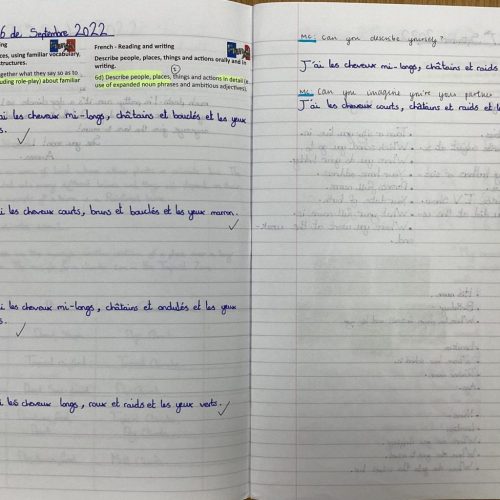 6 de Septembre 2022
ces, using familiar vocabulary,
structures.
gether what they say so as to
uding role-play) about familiar
French - Reading and writing
Describe people, places, things and actions orally and in
writing.
6d) Describe people, places, things and actions in detail (e.
use of expanded noun phrases and ambitious adjectives).
ai les cheveux mi-longs, châtains et bouclés et les yeux
s.
ai les cheveux courts, bruns et bouclés et les yeux marron.
ai les cheveux mi-longs, châtains et ondulés et les yeux
s.
ai les cheveux longs, roux et raids et les yeux verts.
MC: Can you describe yourself?
J'ai les cheveux mi-longs, châtains et raids
MC: Can you imagine you're your partner
J'ai les cheveux courts, châtains et raids et l